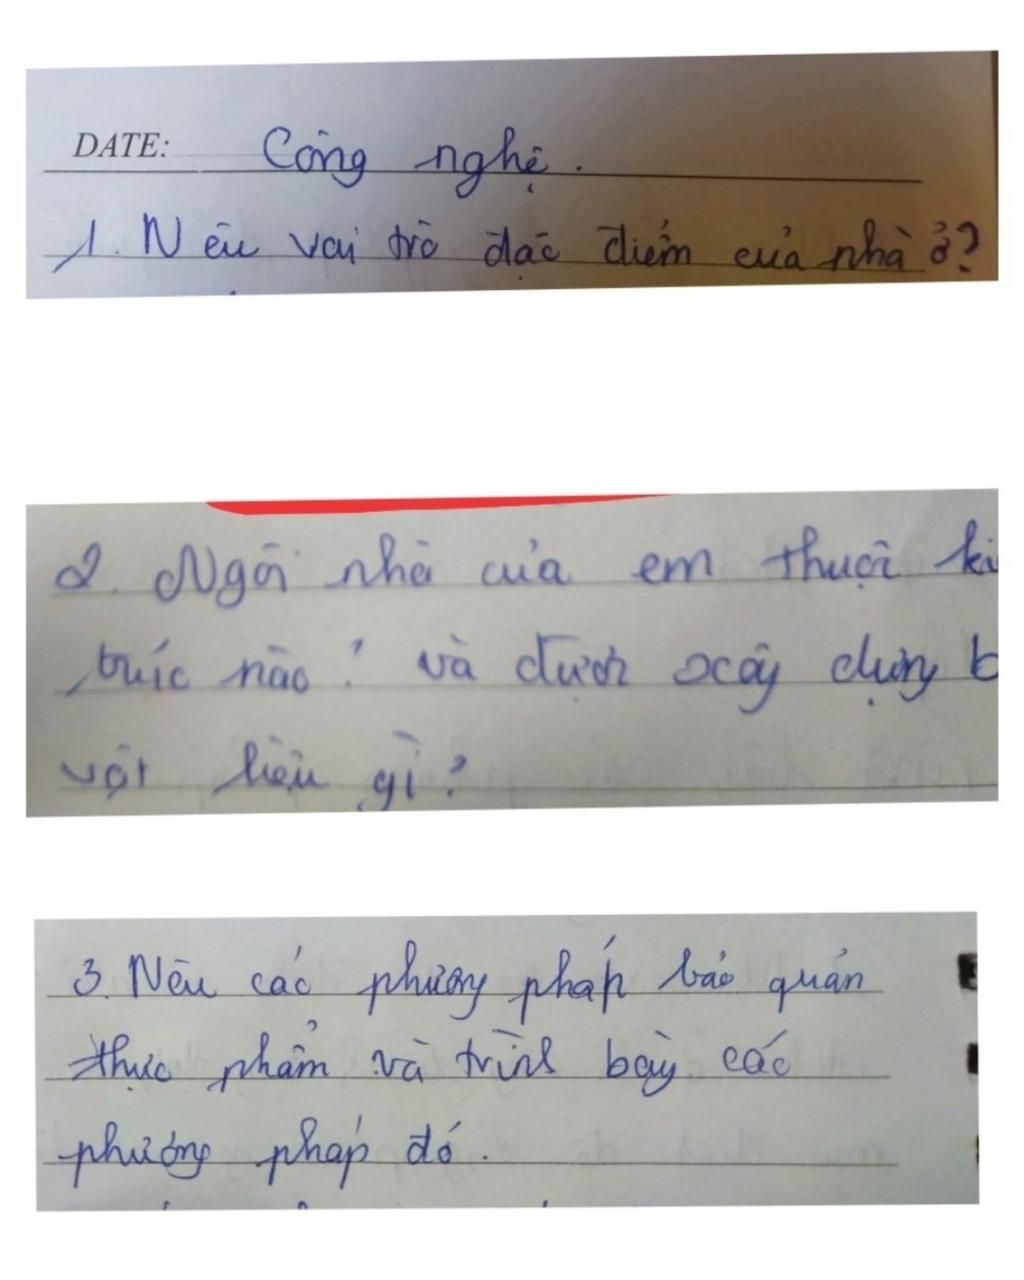 DATE: Công nghệ.
1. Nêu vai trò đặc điểm của nhà ở?
2. Ngôi nhà của em thuộc ki
trúc nào? và được xây dựng b
vật liệu gì?
3. Nêu các phương pháp bảo quản
thực phẩm và trình bày các
phương pháp đó.